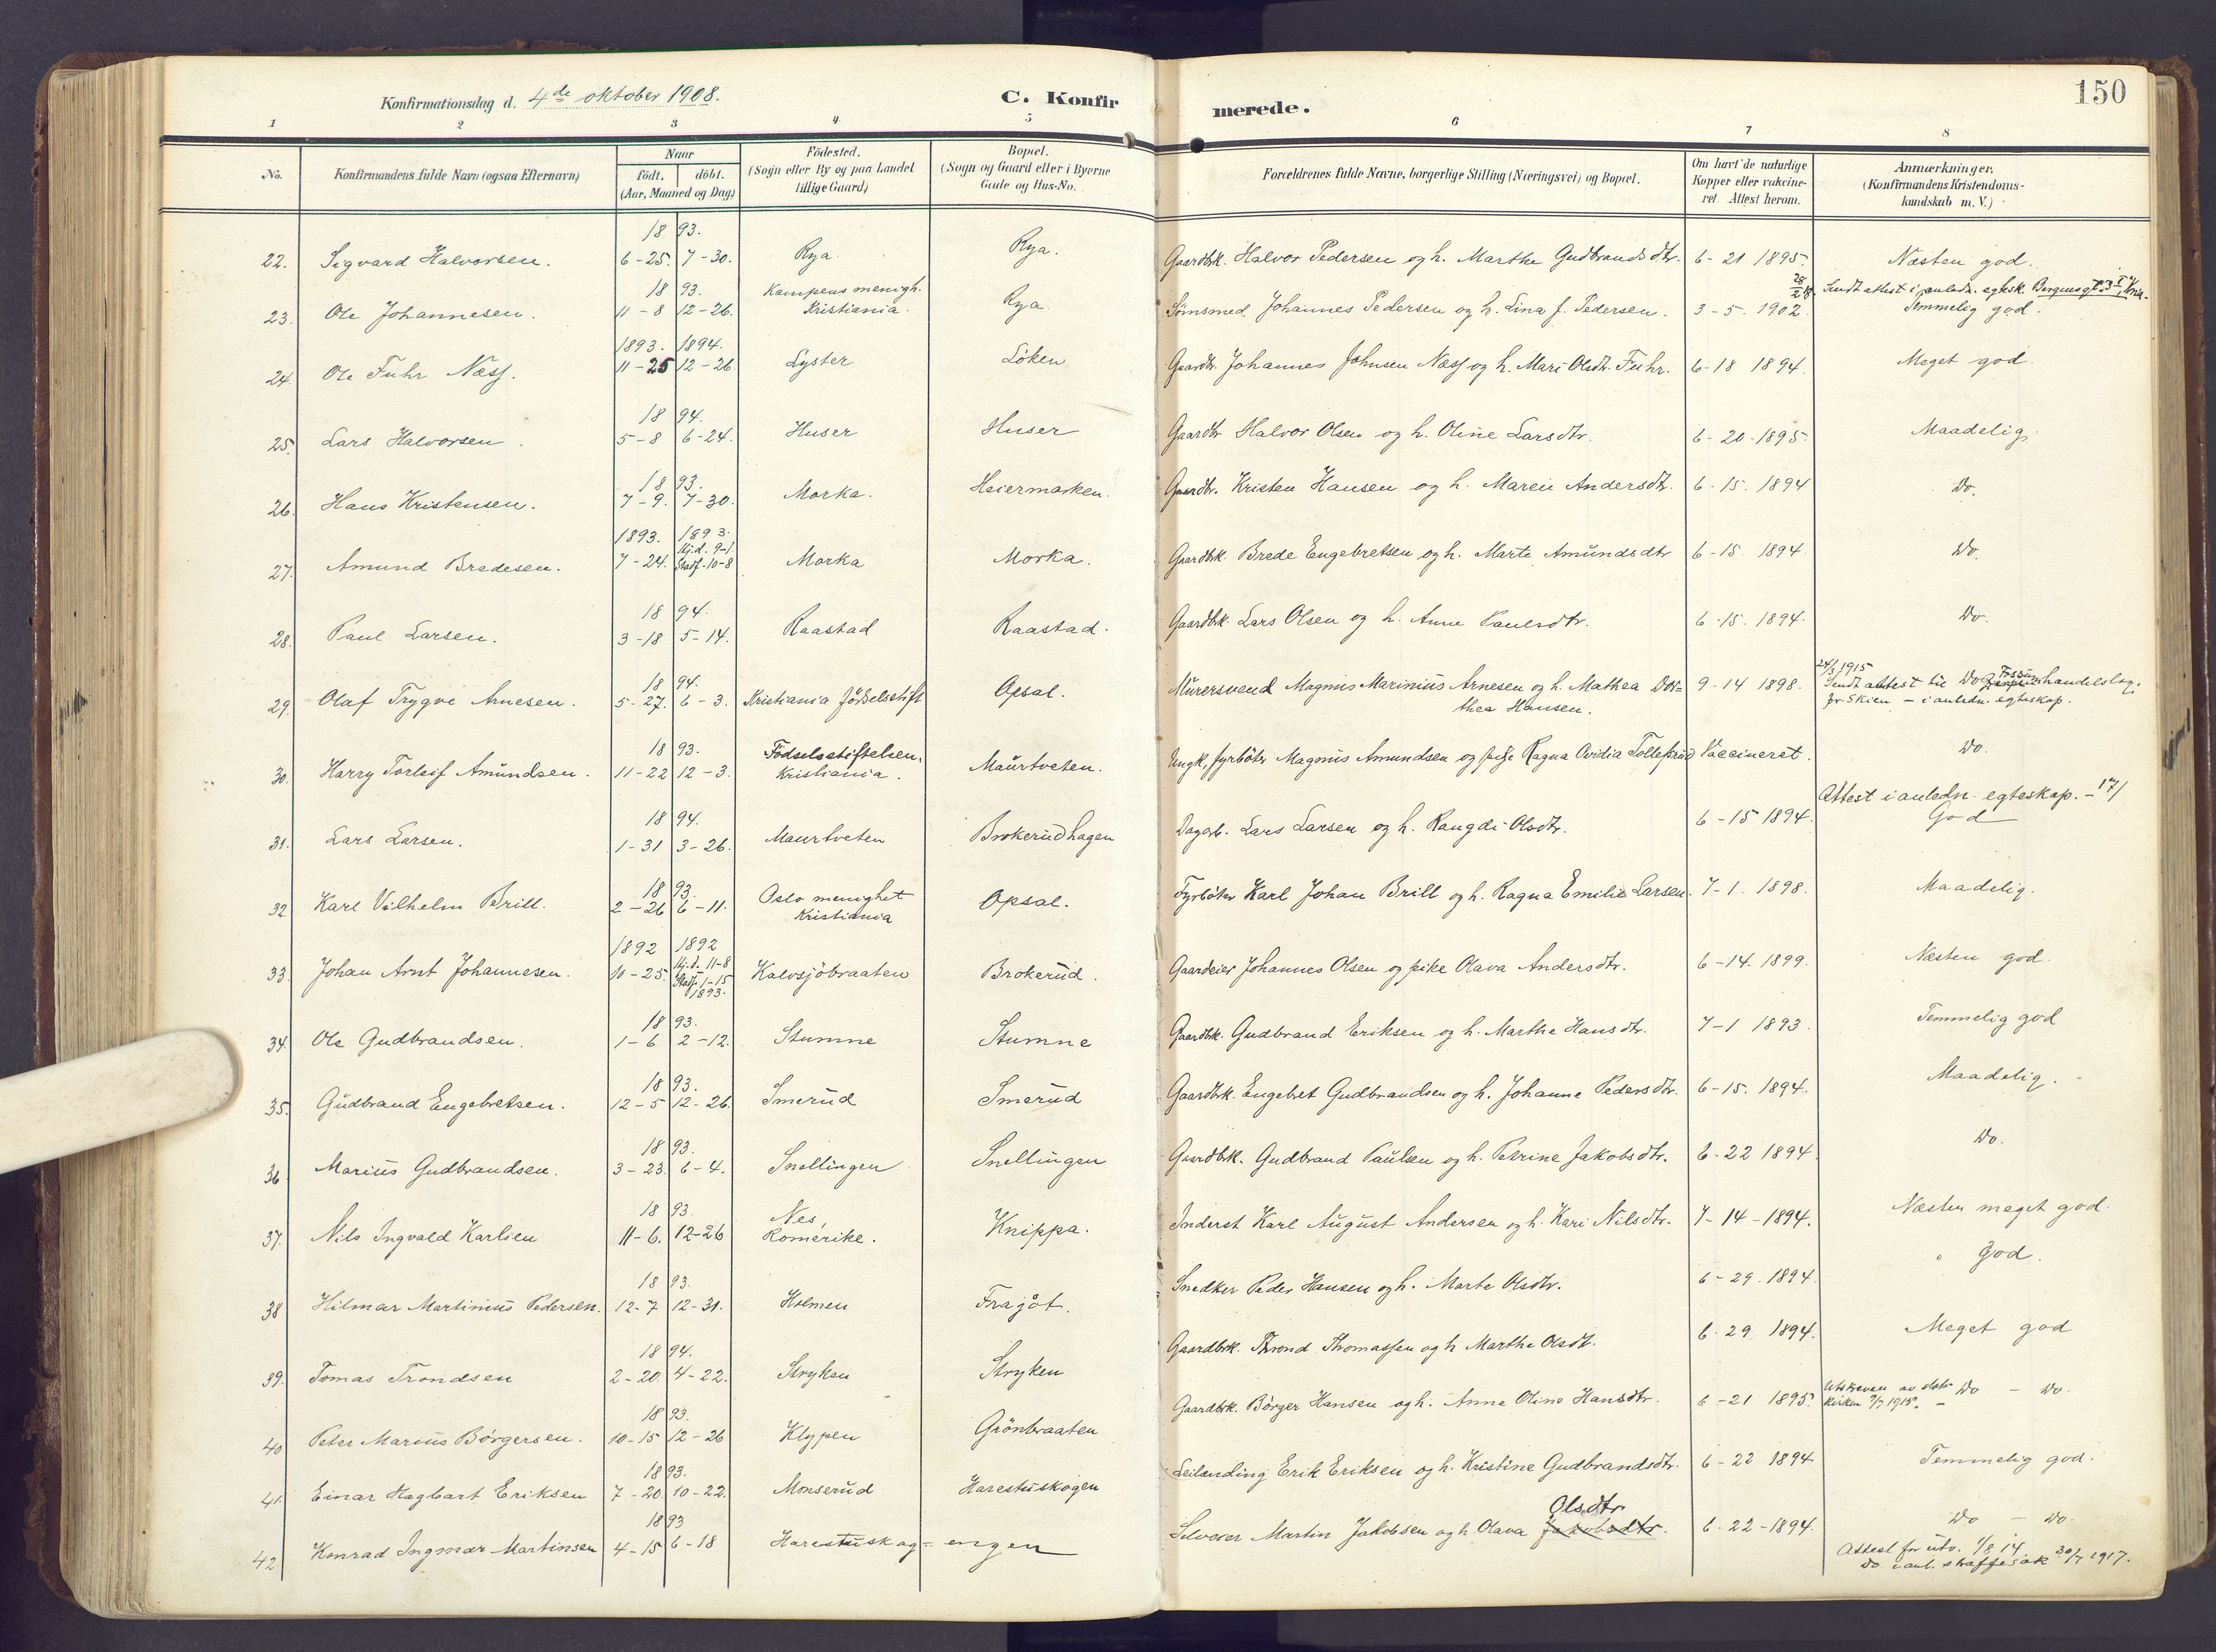 Konfirmationsdag d. 4de oktober 1908. C. Konfirmerede. 150
1 2 3 4 5 6 7 8
No. Konfirmandens fulde Navn (ogsaa Efternavn) Naar født. døbt. (Aar, Maaned og Dag) Fødested. (Sogn eller By og paa Landet tillige Gaard) Bopæl. (Sogn og Gaard eller i Byerne Gade og Hus-No. Forældrenes fulde Navne, borgerlige Stilling (Næringsvei) og Bopæl. Om havt de naturlige Kopper eller vakcineret. Attest herom. Anmærkninger. (Konfirmandens Kristendomskundskab m. V.)
1893.
22. Sigvard Halvorsen. 6-25. 7-30. Rya. Rya. Gaardbk. Halvor Pedersen og h. Marthe Gudbrandsdtr. 6-21 1895. Næsten god.
1893. Kampens menigh. Sendt attest i anledn. egtsk.
23. Ole Johannesen. 11-8 12-26. Kristiania. Rya. Sömsmed Johannes Pedersen og h. Lina f. Pedersen. 3-5. 1902. Temmelig god.
1893. 1894.
24. Ole Fuhr Næss. 11-25 12-26 Lyster Löken Gaardbr. Johannes Johnsen Næss og h. Mari Olsdtr. Fuhr. 6-18 1894. Meget god.
1894.
25. Lars Halvorsen. 5-8 6-24. Huser Huser Gaardbr Halvor Olsen og h. Oline Larsdtr. 6-20-1895. Maadelig.
1893.
26. Hans Kristensen. 7-9. 7-30. Morka. Heiermarken. Gaardbr. Kristen Hansen og h. Maren Andersdtr. 6-15. 1894 Do.
1893. 1893. Hj.d. 9-1
27. Amund Bredesen. 7-24. Stadf. 10-8 Morka Morka. Gaardbk. Brede Engebretsen og h. Marte Amundsdtr 6-15 1894. Do.
1894.
28. Paul Larsen. 3-18 5-14. Raastad Raastad. Gaardbk. Lars Olsen og h. Anne Paulsdtr. 6-15. 1894. Do.
1894. 1915
29. Olaf Trygve Arnesen. 5-27. 6-3. Kristiania födselsstift Opsal. Murersvend Magnus Marinius Arnesen og h. Mathea Dorthea Hansen. 9-14 1898. Sendt attest til Do handelslag. pr Skien - i anledn. egteskap.
1893. Födselsstiftelsen,
30. Harry Torleif Amundsen. 11-22 12-3. Kristiania. Maurtveten. Ungk. fyrböter Magnus Amundsen og pige Ragna Ovidia Tollefsrud Vaccineret. Do.
1894. Attest i anledn. egteskap. - 17/
31. Lars Larsen. 1-31 3-26. Maurtveten Brokerudhagen Dagarb. Lars Larsen og h. Rangdi Olsdtr. 6-15 1894. God
1893. Oslo menighet
32. Karl Vilhelm Brill. 2-26 6-11. Kristiania Opsal. Fyrböter Karl Johan Brill og h. Ragna Emilie Larsen. 7-1. 1898. Maadelig.
1892 1892 Hj.d. 11-8
33. Johan Arnt Johannesen. 10-25. Stadf. 1-15 1893. Kalvsjöbraaten Brokerud. Gaardeier Johannes Olsen og pike Olava Andersdtr. 6-14. 1899. Næsten god.
1893.
34. Ole Gudbrandsen. 1-6 2-12. Stumne Stumne Gaardbk. Gudbrand Eriksen og h. Marthe Hansdtr. 7-1 1893. Temmelig god
1893.
35. Gudbrand Engebretsen. 12-5 12-26. Smerud Smerud Gaardbk. Engebret Gudbrandsen og h. Johanne Pedersdtr. 6-15. 1894. Maadelig.
1893.
36 Marius Gudbrandsen. 3-23. 6-4. Snellingen Snellingen Gaardbk. Gudbrand Paulsen og h. Petrine Jakobsdtr. 6-22 1894 Do.
1893. Nes,
37. Nils Ingvald Karlsen 11-6. 12-26 Romerike. Knippa. Inderst Karl August Andersen og h. Kari Nilsdtr. 7-14-1894. Næsten meget god.
1893.
38 Hilmar Martinius Pedersen. 12-7 12-31. Holmen Fragöt. Snedker Peder Hansen og h. Marte Olsdtr. 6-29. 1894 " God.
1894.
39. Tomas Trondsen 2-20. 4-22. Stryken Stryken Gaardbrk. Thrond Thomassen og h Marthe Olsdt. 6-29 1894. Meget god
1893.
40 Peter Marius Börgersen. 10-15 12-26 Klypen Grönbraaten Gaardbrk. Börger Hansen og h. Anne Oline Hansdtr. 6-21 1895. Utskreven av statskirken 9/7 1915. Do - Do.
1893.
41. Einar Hagbart Eriksen 7-20. 10-22. Monserud Harestuskogen Leilending Erik Eriksen og h. Kristine Gudbrandsdtr. 6-22 1894 Temmelig god.
1893 Olsdtr
42. Konrad Ingmar Martinsen 4-15 6-18 Harestuskog-engen Selveier Martin Jakobsen og h Olava Jakobsdtr. 6-22-1894. Do - Do.
Attest for utv. 1/8 14.
Do i anl. straffesak 30/7 1917.